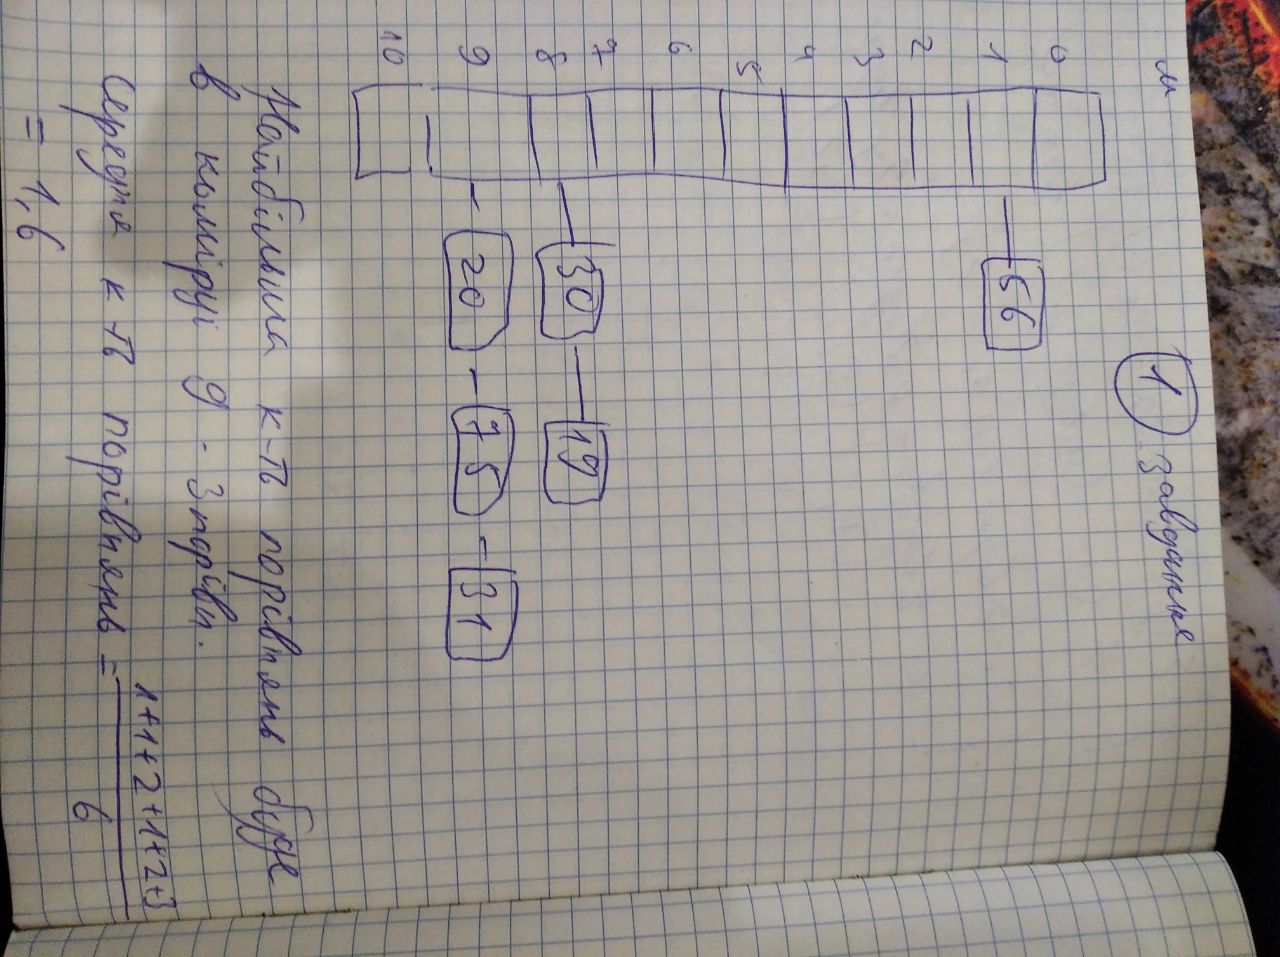 1 завдання
м
0
1 — 56
2
3
4
5
6
7
8 — 30 — 19
9 - 20 - 75 - 31
10
Найбільша к-ть порівнянь буде
в комірці 9 - 3 порівн.
Середня к-ть порівнянь = 1+1+2+1+2+3
6
= 1,6